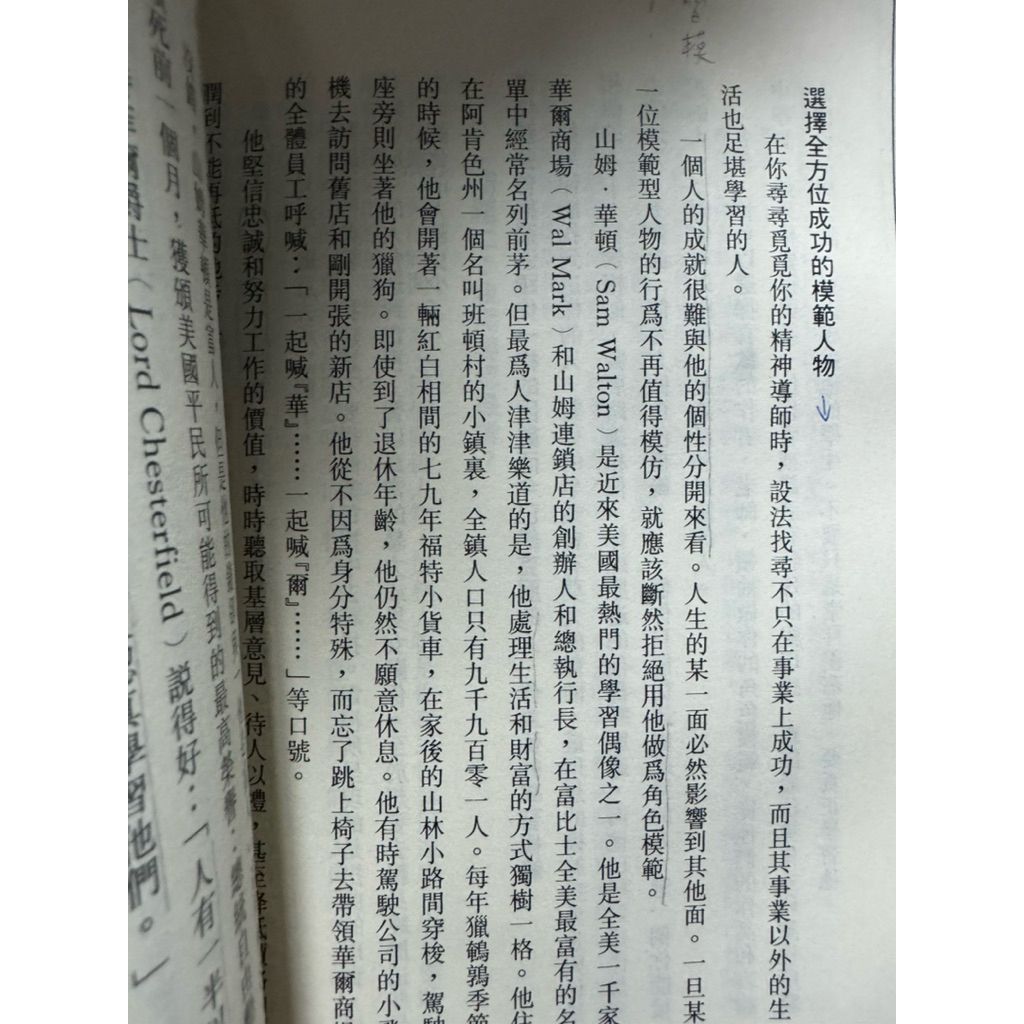 選擇全方位成功的模範人物
在你尋尋覓覓你的精神導師時，設法找尋不只在事業上成功，而且其事業以外的生
活也足堪學習的人。
一個人的成就很難與他的個性分開來看。人生的某一面必然影響到其他面。一旦某
一位模範型人物的行爲不再值得模仿，就應該斷然拒絕用他做爲角色模範。
山姆．華頓（Sam Walton）是近來美國最熱門的學習偶像之一。他是全美一千家
華爾商場（Wal Mark）和山姆連鎖店的創辦人和總執行長，在富比士全美最富有的名
單中經常名列前茅。但最爲人津津樂道的是，他處理生活和財富的方式獨樹一格。他住
在阿肯色州一個名叫班頓村的小鎮裏，全鎮人口只有九千九百零一人。每年獵鵪鶉季節
的時候，他會開著一輛紅白相間的七九年福特小貨車，在家後的山林小路間穿梭，駕駛
座旁則坐著他的獵狗。即使到了退休年齡，他仍然不願意休息。他有時駕駛公司的小飛
機去訪問舊店和剛開張的新店。他從不因爲身分特殊，而忘了跳上椅子去帶領華爾商場
的全體員工呼喊：「一起喊『華』……一起喊『爾』……」等口號。
他堅信忠誠和努力工作的價值，時時聽取基層意見、待人以禮，甚至降低
潤到不能再低的地
死前一個月，獲頒美國平民所可能得到的最高榮
爵士（Lord Chesterfield）說得好：「人有一半
學習他們。」